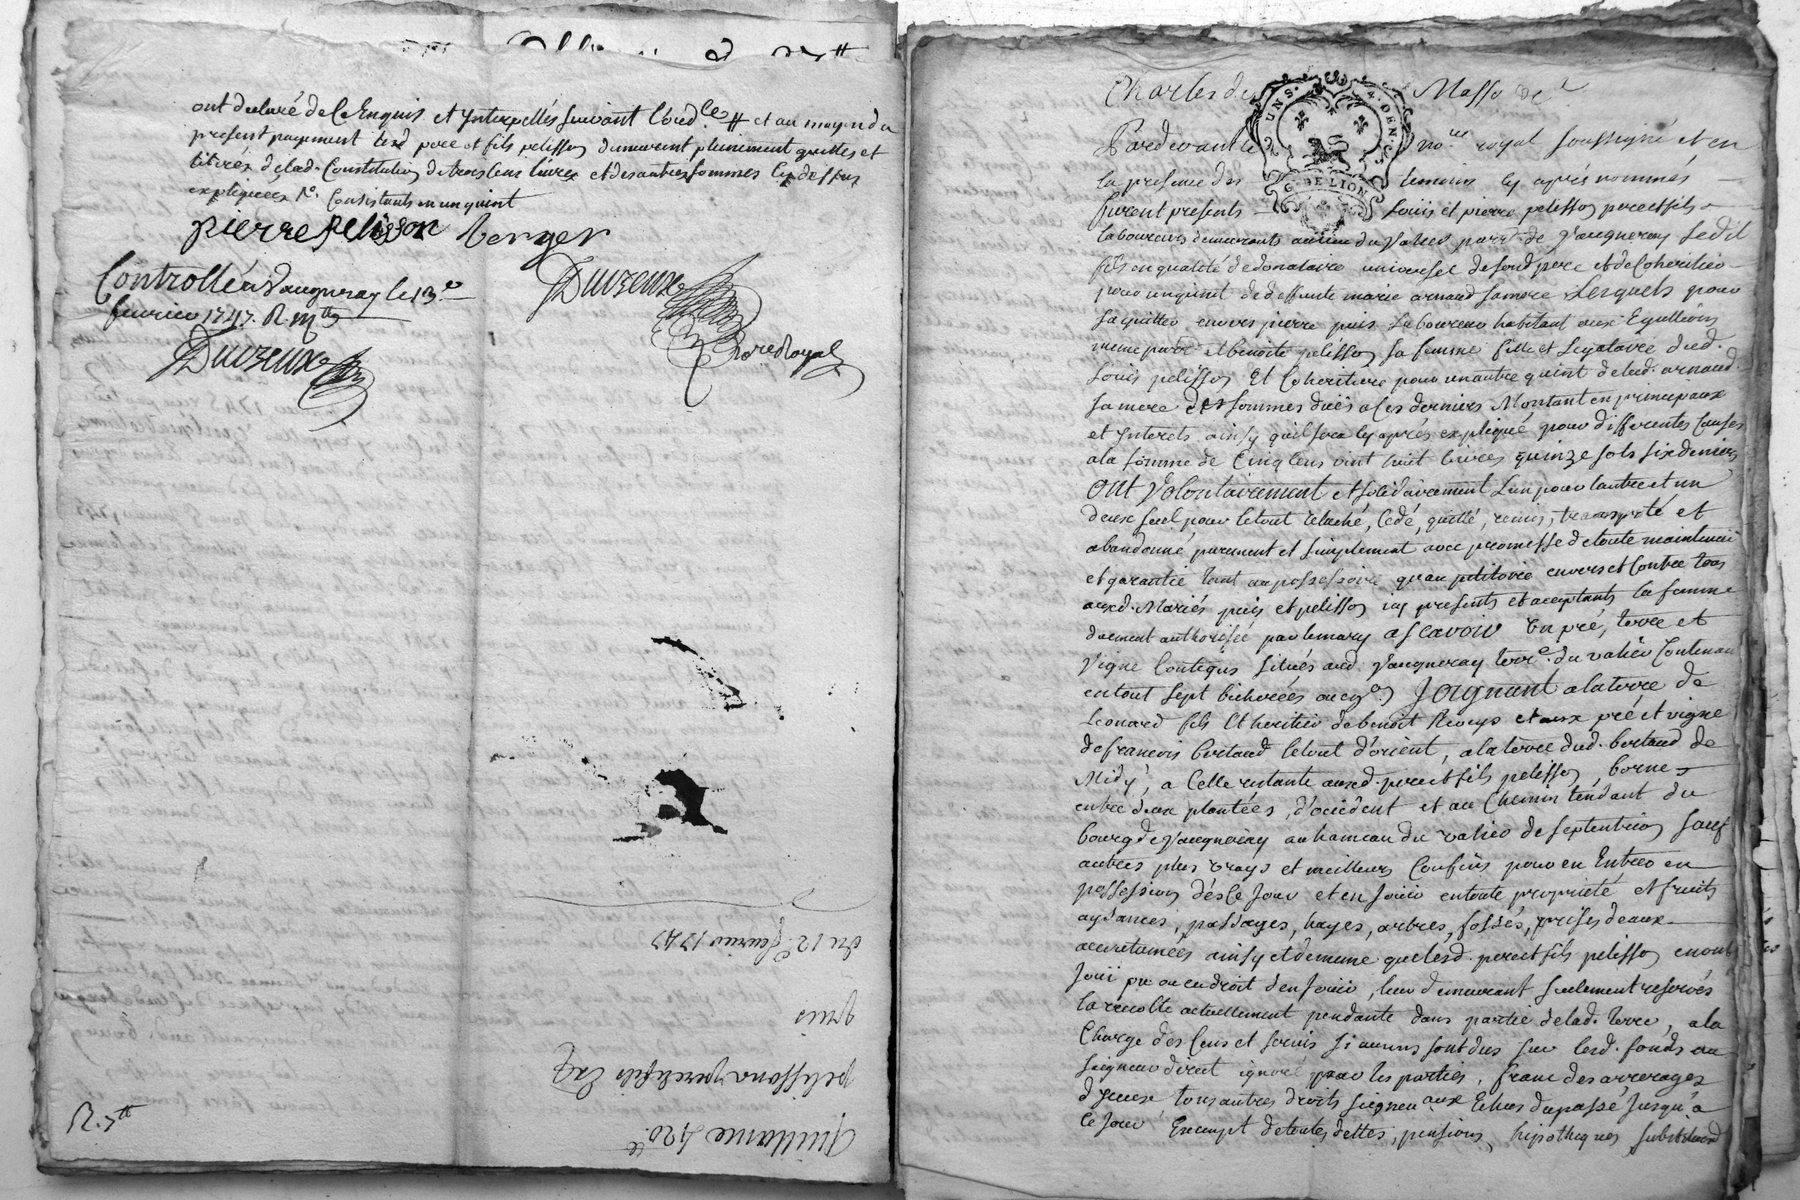 ont declaré de ce Enquis et Interpellés suivant l'ord.ce # et au moyen du
present payement lesd pere et fils pelisson demeurent pleinement quittes et
liberés de lad. Constitution de trois cens livres et des autres sommes cy dessus
expliquées Consistants en un quint
pierre pelisson berger
Controllé à Vaugneray le 13.e
fevrier 1747. R.
Duvzeux
Duvzeux
No.re Royal
du 12.e fevrier 1747
puis
pelisson a pere et fils
Quittance
R. 3 tt
Charles de Masso &c.
UNS. 4. DEN.
G. DE LION
Pardevant le no.re royal soussigné et en
la presence des temoins cy après nommés
furent presents Loüis et pierre pelisson pere et fils
laboureurs demeurants au lieu du Valier parr.e de Vaugneray ledit
fils en qualité de donataire universel de sond. pere et de Coheritier
pour un quint de deffunte marie arnaud sa mere Lesquels pour
sa quitter envers pierre puis Laboureur habitant aux Eguillons
meme parr.e et benoite pelisson sa femme fille et Legataire dud.
Loüis pelisson Et Coheritiere pour un autre quint de lad. arnaud
sa mere des sommes duës a ces derniers Montant en principaux
et Interets ainsy quil sera cy après expliqué pour differentes Causes
a la somme de Cinq Cens vint huit livres quinze sols six deniers
Ont Volontairement et solidairement L'un pour l'autre et un
deux seul pour le tout relaché, Cedé, quitté, remis, transporté et
abandonné, purement et simplement avec promesse de toute maintenüe
et garantie tant au possessoire qu'au petitoire envers et Contre tous
auxd. Mariés puis et pelisson icy presents et acceptants la femme
duement authorisée par le mary a scavoir Un pré, terre et
Vigne Contigus situés aud. Vaugneray terr.e du Valier Contenant
en tout sept bicherées environ Joignant a la terre de
Leonard fils Et heritier de benoit et aux pré et vigne
de francois bertaud le tout d'orient, a la terre dud. bertaud de
Midy, a Celle restante auxd. pere et fils pelisson, bornes
entre deux plantées, d'occident et au Chemin tendant du
bourg de Vaugneray au hameau du Valier de septentrion sauf
autres plus vrays et meilleurs Confins pour en Entrer en
possession dès Ce Jour et en Joüir en toute proprieté et fruits
aysances, passages, hayes, arbres, fossés, prises deaux
accoutumées ainsy et de meme que lesd. pere et fils pelisson en ont
Joüi pu ou eu droit d'en Joüir, leur demeurant seulement reservés
la recolte actuellement pendante dans partie de lad. terre, a la
Charge des Cens et servis si aucuns sont dus sur lesd. fonds au
seigneur direct ignoré par les parties, franc des arrerages
d'yceux tous autres droits seigneuriaux Echus du passé Jusqu'a
Ce Jour Exempt de toutes dettes, pensions, hipotheques, substitu